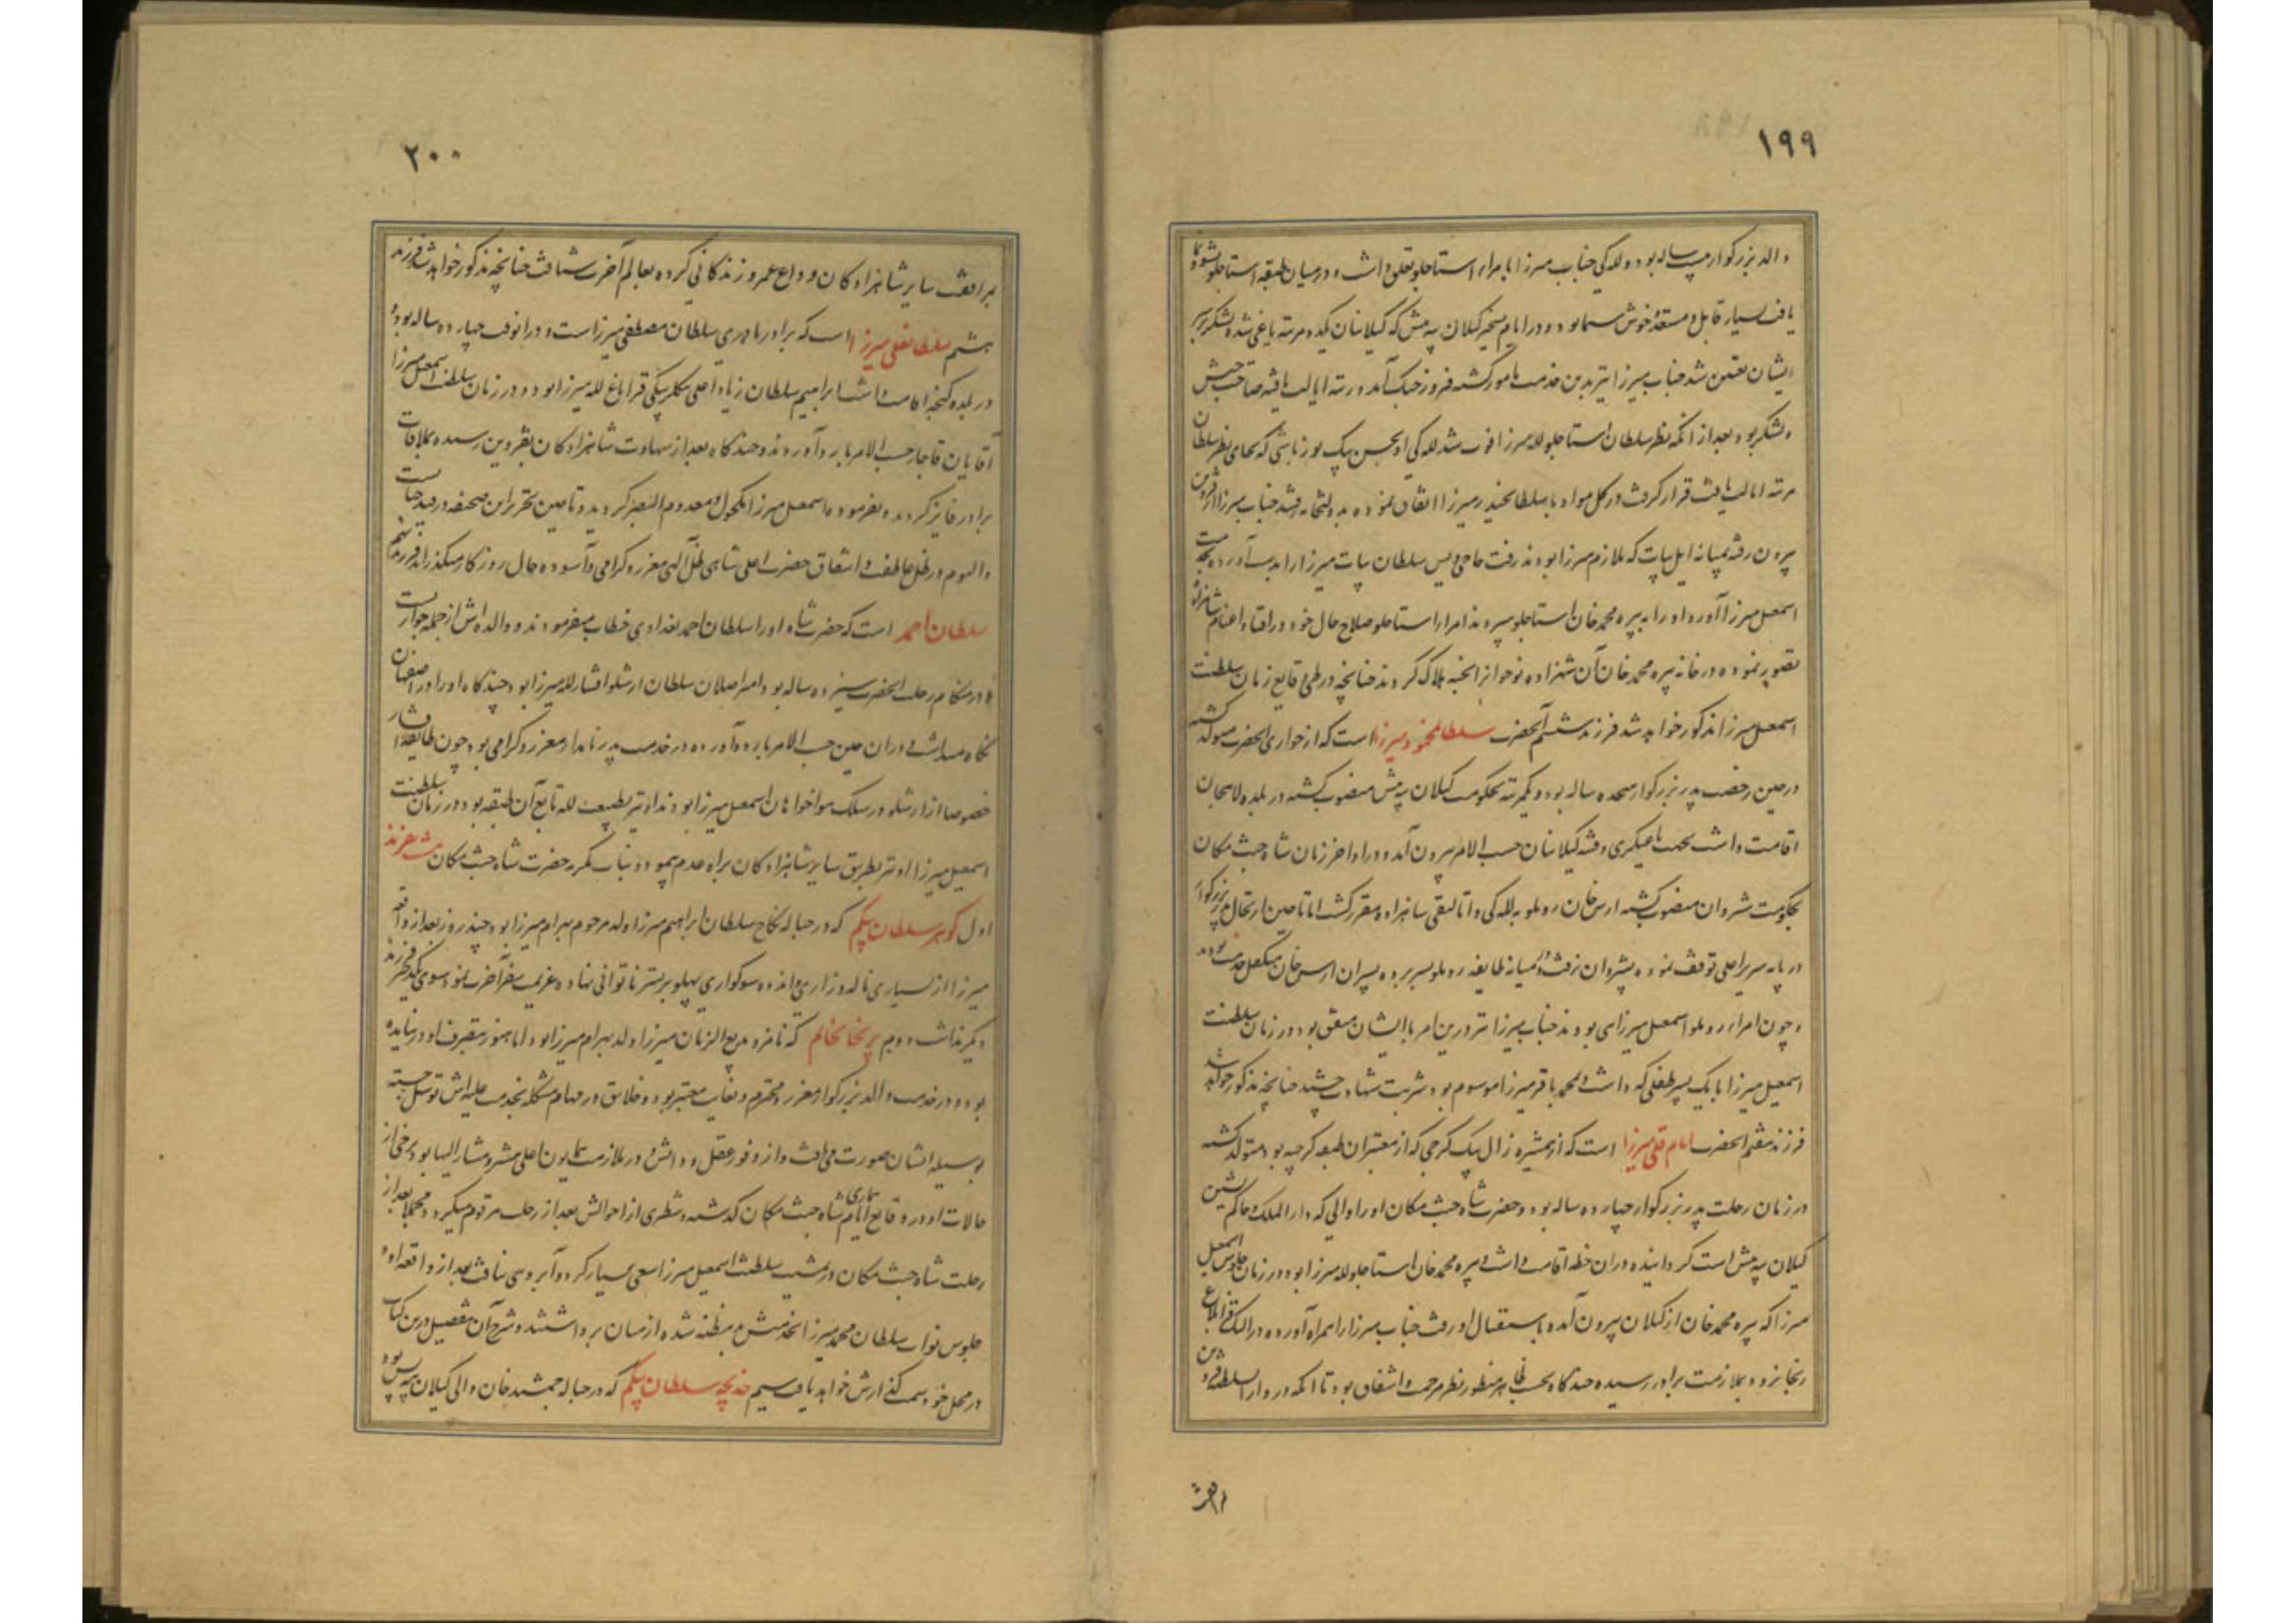 ۱۹۹
والد بزرگوار بیست ساله بود و للگی جناب میرزا بامراء استاجلو تعلق داشت و در میان طبقه استاجلو نشو و نما
یافت بسیار قابل و مستعد و خوش سیما بود و در ایام تسخیر گیلان بیه پیش که گیلانیان یکدو مرتبه یاغی شده لشکر بر سر
ایشان تعیین شد جناب میرزا نیز بدین خدمت مامور گشته فروز جنگ آمد و رتبه ایالت یافته صاحب جیش
و لشکر بود بعد از آنکه نظر سلطان استاجلو لله میرزا فوت شد للگی او بحسن بیک یوزباشی که بجای نظر سلطان
مرتبه ایالت یافت قرار گرفت و در کل مواد با سلطان حیدر میرزا اتفاق نموده بدولتخانه رفتند جناب میرزا از قزوین
بیرون رفته بمیانه ایل بیات که ملازم میرزا بودند رفت حاجی ویس سلطان بیات میرزا را بدست آورده بخدمت
اسمعیل میرزا آورد او را به پیره محمد خان استاجلو سپردند امراء استاجلو صلاح حال خود در افناء و اعدام شاهزاده
تصویر نموده در خانه پیره محمد خان آن شهزاده نوجوان را بخبه هلاک کردند چنانچه در طی وقایع زمان سلطنت
اسمعیل میرزا مذکور خواهد شد فرزند ششم آنحضرت سلطان محمود میرزا است که از جواری آنحضرت متولد گشته
در حین رخصت پدر بزرگوار هجده ساله بود و یکمرتبه بحکومت گیلان بیه پیش منصوب گشته در بلده لاهیجان
اقامت داشت بجهت یاغیگری و فتنه گیلانیان حسب الامر بیرون آمد و در اواخر زمان شاه جنت مکان
بحکومت شروان منصوب گشته ارس خان روملو به للگی و اتالیقی شاهزاده مقرر گشت اما تا حین ارتحال پدر بزرگوار
در پایه سریر اعلی توقف نموده بشروان نرفت و در میانه طایفه روملو بسر برده پسران ارس خان متکفل خدمت بودند
و چون امراء روملو اسمعیل میرزایی بودند جناب میرزا نیز درین امر با ایشان متفق بود و در زمان سلطنت
اسمعیل میرزا با یک پسر طفلی که داشت و محمد باقر میرزا موسوم بود شربت شهادت چشید چنانچه مذکور خواهد شد
فرزند هفتم آنحضرت امام قلی میرزا است که از همشیره زال بیک گرجی که از معتبران طبقه گرجیه بود متولد گشته
در زمان رحلت پدر بزرگوار چهارده ساله بود و حضرت شاه جنت مکان او را والی که دار الملک و حاکم نشین
گیلان بیه پیش است گردانیده در آن خطه اقامت داشت و پیره محمد خان استاجلو لله میرزا بود و در زمان جلوس اسمعیل
میرزا که پیره محمد خان از گیلان بیرون آمده باستقبال او رفت جناب میرزا را همراه آورده در النک قراباغ
زنجانرود بملازمت برادر رسیده چندگاه بحسب ظاهر منظور نظر مرحمت و اشفاق بود تا آنکه در دار السلطنه قزوین
بمرافقت
۲۰۰
بمرافقت سایر شاهزادگان وداع عمر و زندگانی کرده بعالم آخرت شتافت چنانچه مذکور خواهد شد فرزند
هشتم سلطان علی میرزا است که برادر مادری سلطان مصطفی میرزاست و در آنوقت چهارده ساله بود و
در بلده گنجه اقامت داشت ابراهیم سلطان زیاد اغلی بیکلربیکی قراباغ لله میرزا بود و در زمان سلطنت اسمعیل میرزا
آقایان قاجار حسب الامر باردو آوردند و چندگاه بعد از شهادت شاهزادگان بقزوین رسیده بملاقات
برادر فایز گردیده بفرموده اسمعیل میرزا مکحول و معدوم البصر گردید و تا حین تحریر این صحیفه در قید حیاتست
و الیوم در ظل عاطفت و اشفاق حضرت اعلی شاهی ظل اللهی معزز و گرامی و آسوده حال روزگار میگذراند فرزند نهم
سلطان احمد است که حضرت شاه او را سلطان احمد بغدادی خطاب میفرمودند و والده اش از جمله جواریست
و در هنگام رحلت آنحضرت سیزده ساله بود و امیر اصلان سلطان ارشلو افشار لله میرزا بود چندگاه او را در اصفهان
نگاه میداشت و در آن حین حسب الامر باردو آورده در خدمت پدر نامدار معزز و گرامی بود چون طایفه افشار
خصوصا از ارشلو در سلک هواخواهان اسمعیل میرزا بودند او نیز بطبیعت لله تابع آن طبقه بود در زمان سلطنت
اسمعیل میرزا او نیز بطریق سایر شاهزادگان براه عدم پیمود و بنات مکرمه حضرت شاه جنت مکان هشت فرزند
اول گوهر سلطان بیگم که در حباله نکاح سلطان ابراهیم میرزا ولد مرحوم بهرام میرزا بود چند روز بعد از واقعه
میرزا از بسیاری ناله و زاری و اندوه سوگواری پهلو بر بستر ناتوانی نهاده عزیمت سفر آخرت نمود و سوی یکدختر فرزند
دیگر نداشت دوم پریخان خانم که نامزد بدیع الزمان میرزا ولد بهرام میرزا بود اما هنوز بتصرف او در نیامده
بود و در خدمت والد بزرگوار معزز و محترم و بغایت معتبر بود و خلایق در مهام مشکله بخدمت علیه اش توسل جسته
بوسیله ایشان صورت می یافت و از وفور عقل و دانش در ملازمت همایون اعلی مشیر و مشار الیها بود برخی از
حالات او در وقایع ایام بیماری شاه جنت مکان گذشته و شطری از احوالش بعد از رحلت مرقوم میگردد مجملا بعد از
رحلت شاه جنت مکان در مشیت سلطنت اسمعیل میرزا سعی بسیار کرد و آبروی نیافت بعد از واقعه او و
جلوس نواب سلطان محمد میرزا بخدمتش مظنه شده از میان برداشتند و شرح آن بتفصیل درین کتاب
در محل خود سمت گذارش خواهد یافت سیم خدیجه سلطان بیگم که در حباله جمشید خان والی گیلان بیه پس بود